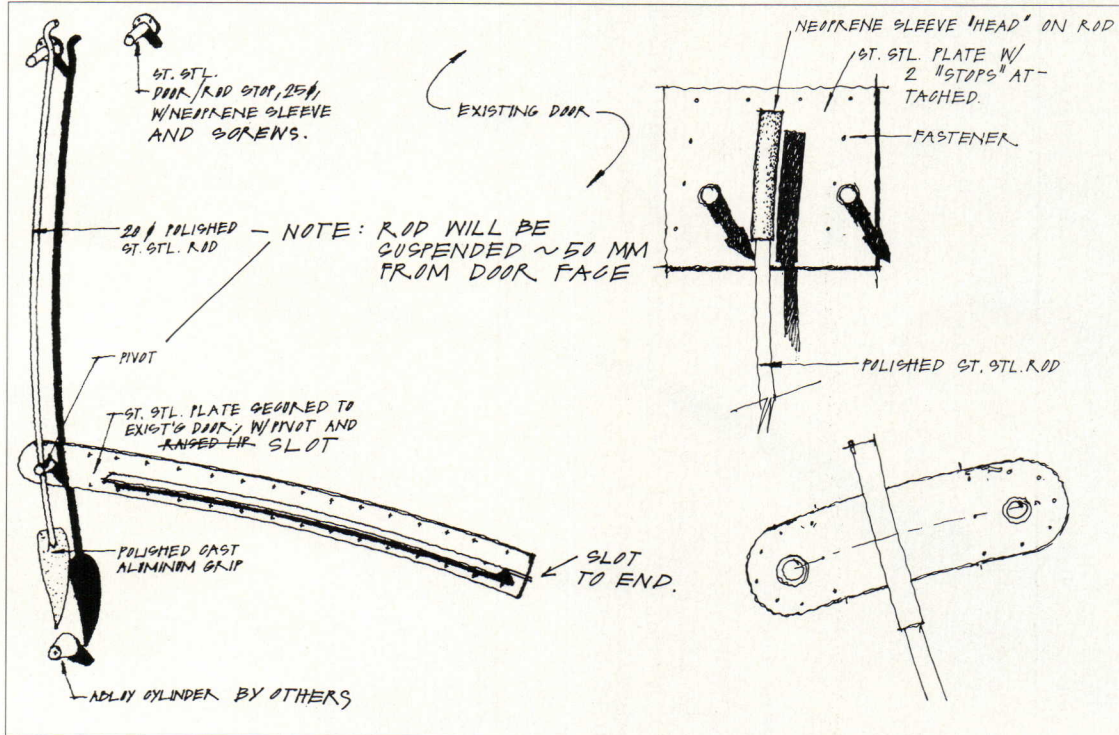 ST. STL.
DOOR/ROD STOP, 25ø,
W/NEOPRENE SLEEVE
AND SCREWS.
EXISTING DOOR
NEOPRENE SLEEVE "HEAD" ON ROD
ST. STL. PLATE W/
2 "STOPS" AT-
TACHED.
FASTENER
20 ø POLISHED
ST. STL. ROD
NOTE: ROD WILL BE
SUSPENDED ~50 MM
FROM DOOR FACE
PIVOT
POLISHED ST. STL. ROD
ST. STL. PLATE SECURED TO
EXIST'G DOOR, W/PIVOT AND
RAISED LIP SLOT
POLISHED CAST
ALUMINUM GRIP
SLOT
TO END.
ABLOY CYLINDER BY OTHERS